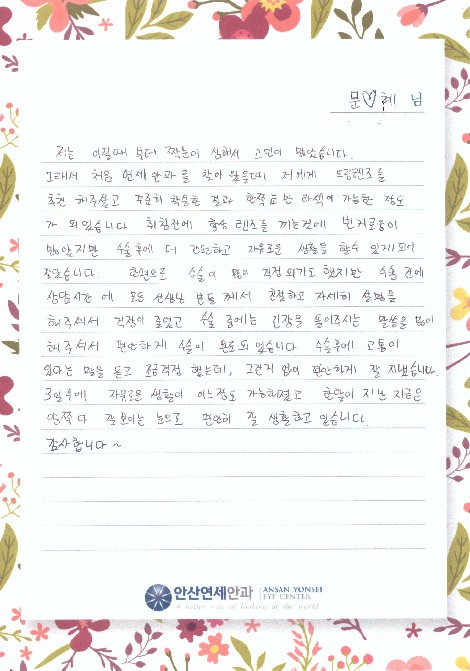 문♡혜 님
저는 어릴때 부터 짝눈이 심해서 고민이 많았습니다.
그래서 처음 연세안과를 찾아 왔을때 저에게 드림렌즈를
추천 해주셨고 꾸준히 착용한 결과 한쪽만 라식이 가능한 정도
가 되었습니다 취침전에 항상 렌즈를 끼는것에 번거로움이
많았지만 수술후에 더 간편하고 자유로운 생활을 할수 있게되어
좋았습니다. 한편으로 수술이 많이 걱정 되기도 했지만 수술 전에
상담시간에 모든 선생님 분들께서 친절하고 자세히 설명을
해주셔서 걱정이 줄었고 수술 중에는 긴장을 풀어주시는 말씀을 많이
해주셔서 편안하게 수술이 완료되었습니다 수술후에 고통이
있다는 말을 듣고 조금걱정 했는데, 그런거 없이 편안하게 잘 지냈습니다.
3일후에 자유로운 생활이 어느정도 가능해졌고 한달이 지난 지금은
양쪽다 잘보이는 눈으로 편안히 잘 생활하고 있습니다.
감사합니다~
안산연세안과 ANSAN YONSEI
EYE CENTER
A better way of looking at the world